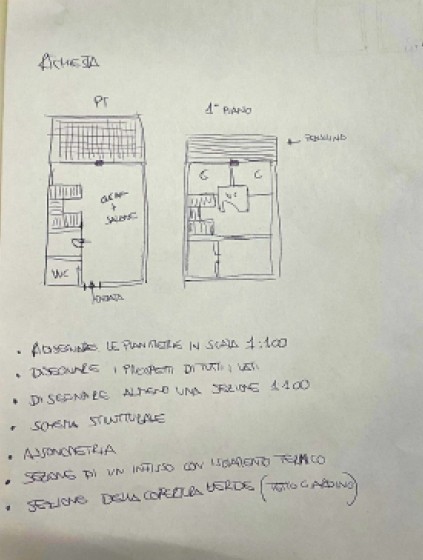 RICHIESTA
PT
1° PIANO
CUCINA
+
SALONE
C
C
WC
WC
ENTRATA
• RIDISEGNARE LE PIANIMETRIE IN SCALA 1:100
• DISEGNARE I PROSPETTI DI TUTTI I LATI
• DISEGNARE ALMENO UNA SEZIONE 1:100
• SCHEMA STRUTTURALE
• ASSONOMETRIA
• SEZIONE DI UN INFISSO CON ISOLAMENTO TERMICO
• SEZIONE DELLA COPERTURA VERDE (TETTO GIARDINO)